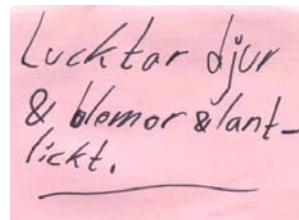 Lucktar djur
& blomor & lant-
lickt.